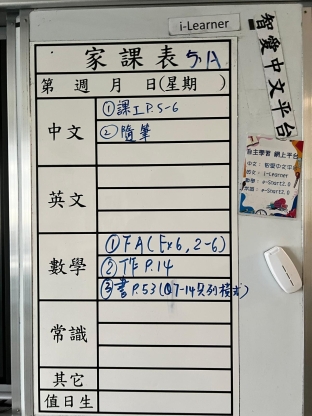 i-Learner
智愛中文平台
家課表 5A
第 週 月 日(星期 )
中文
①課工P.5-6
②隨筆
英文
數學
①FA(Ex6, 2-6)
②工作P.14
③書P.53(①7-14只列橫式)
常識
其它
值日生
自主學習 網上平台
中文: 智愛中文平
英文: i-Learner
數學: e-Smart2.0
常識: e-Smart2.0